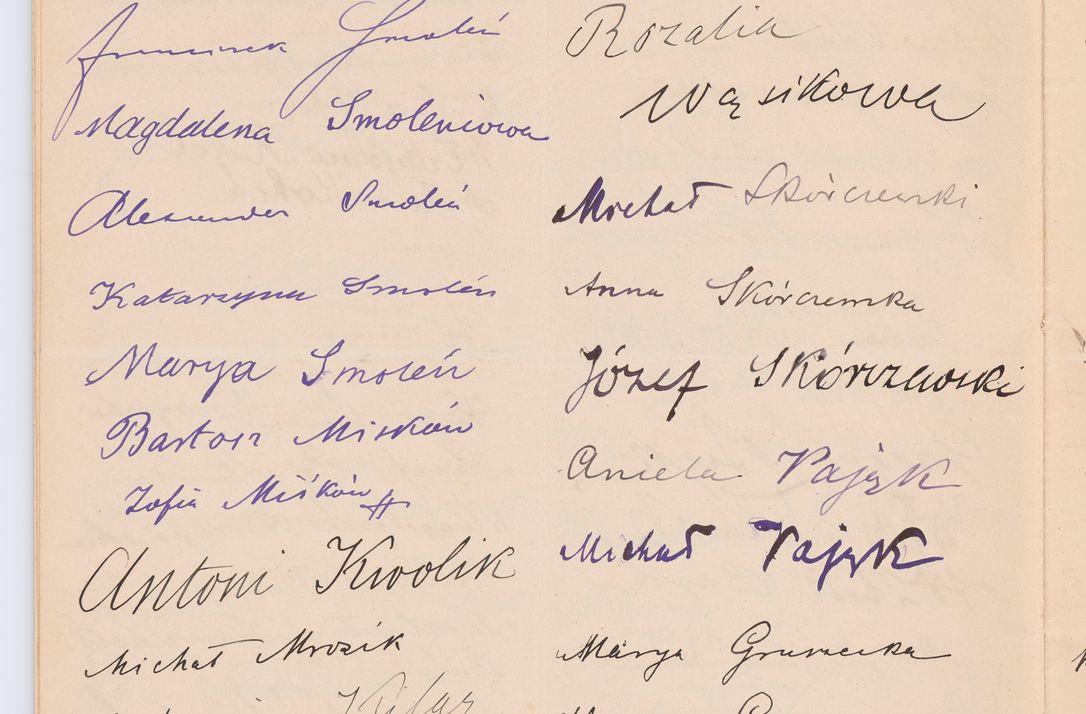 Franciszek Smoleń
Magdalena Smoleniowa
Alexander Smoleń
Katarzyna Smoleń
Marya Smoleń
Bartosz Miśków
Zofia Miśków
Antoni Kwolik
Michał Mrozik
Rozalia
Wąsikowa
Michał Skórczewski
Anna Skórczewska
Józef Skórczewski
Aniela Pająk
Michał Pająk
Marya